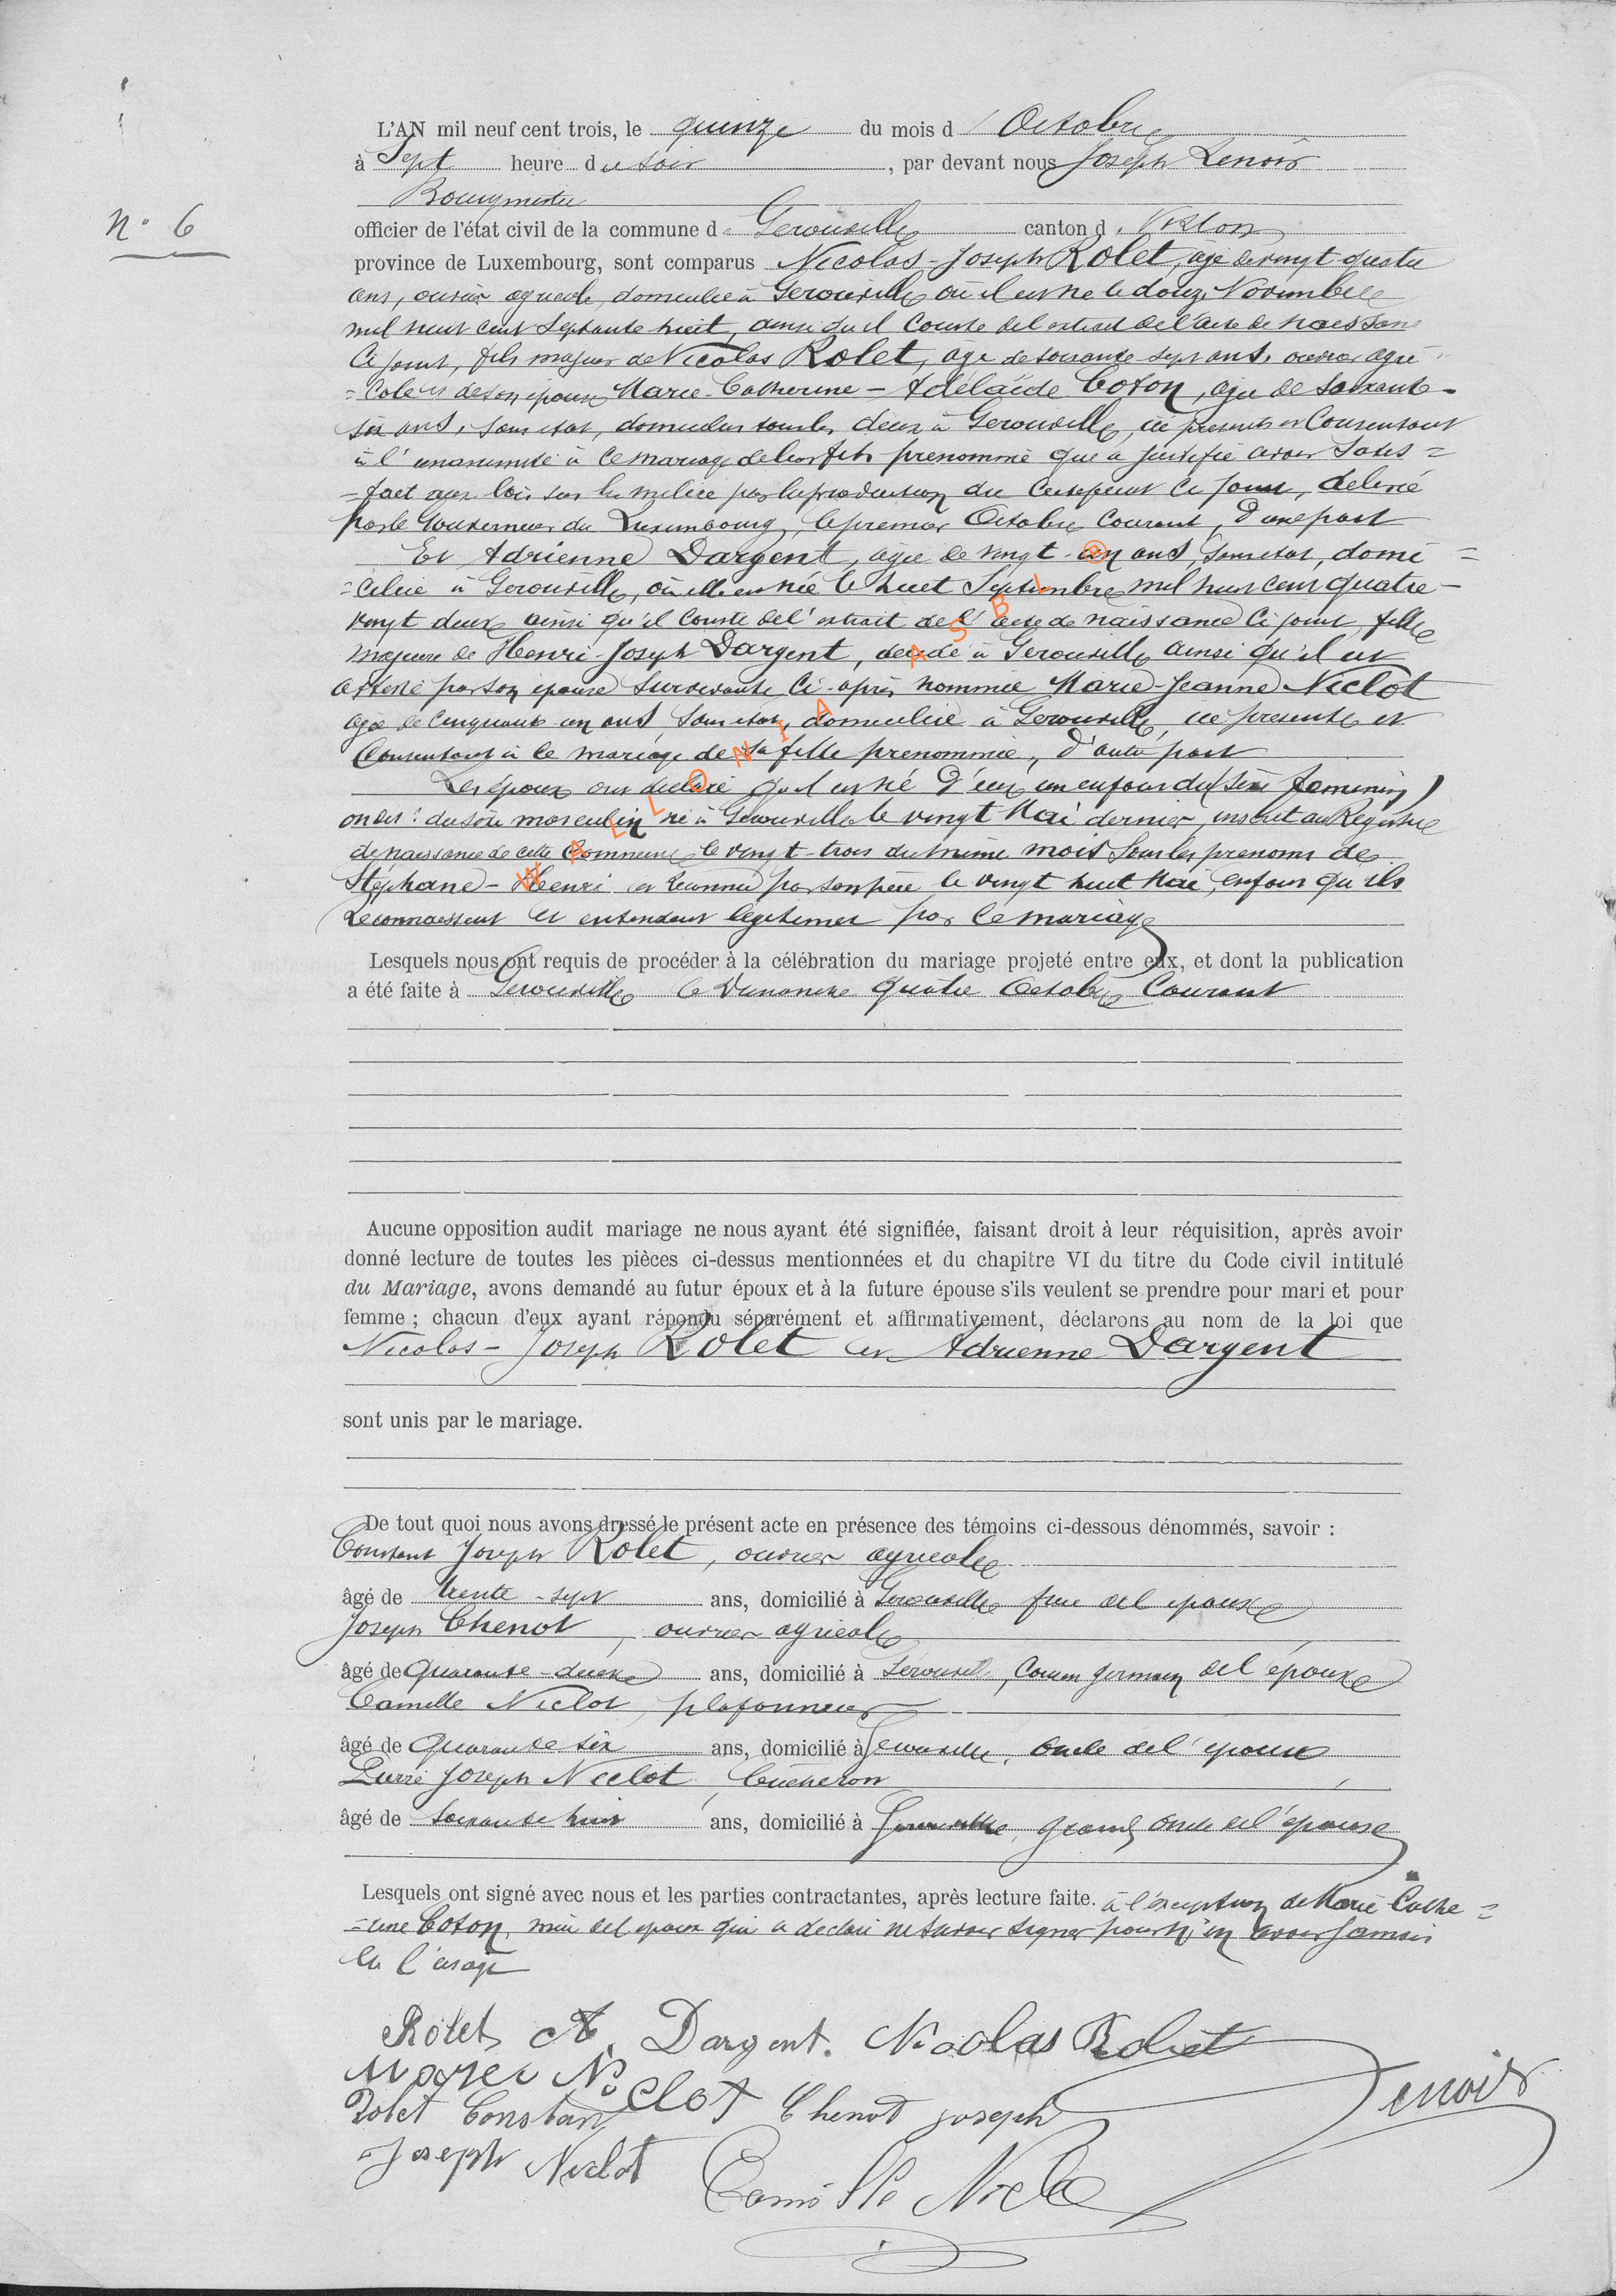 L'AN mil neuf cent trois, le quinze du mois d' Octobre
à Sept heure du soir, par devant nous Joseph Lenoir
Bourgmestre
N° 6
officier de l'état civil de la commune de Gerouville canton de Virton
province de Luxembourg, sont comparus Nicolas-Joseph Rolet, âgé de vingt quatre
ans, ouvrier agricole, domicilié à Gerouville où il est né le douze Novembre
mil huit cent septante huit, ainsi qu'il conste de l'extrait de l'acte de naissance
ci joint, fils majeur de Nicolas Rolet, âgé de soixante-sept ans, ouvrier agri-
=cole et de son épouse Marie-Catherine-Adélaïde Coton, agée de soixante-
six ans, sans état, domiciliés tous les deux à Gerouville, ici présents et consentant
à l'unanimité à ce mariage de leur fils prénommé qui a justifié avoir satis=
=fait aux lois sur la milice par la production du certificat ci joint, délivré
par le Gouverneur du Luxembourg, le premier Octobre courant, d'une part
Et Adrienne Dargent, agée de vingt-un ans, sans état, domi=
=ciliée à Gerouville, où elle est née le huit Septembre mil huit cent quatre-
vingt deux ainsi qu'il conste de l'extrait de l'acte de naissance ci joint, fille
majeure de Henri-Joseph Dargent, décédé à Gerouville ainsi qu'il est
attesté par son épouse survivante ci-après nommée Marie-Jeanne Niclot
agée de cinquante un ans, sans état, domiciliée à Gerouville, ici présente et
consentant à ce mariage de sa fille prénommée, d'autre part
Les époux ont déclaré qu'il est né d'eux un enfant du sexe féminin,
on dit: du sexe masculin né à Gerouville le vingt Mai dernier, inscrit au Registre
de naissance de cette Commune le vingt-trois du même mois sous les prénoms de
Stéphane-Henri et reconnu par son père le vingt huit Mai, enfant qu'ils
reconnaissent et entendent légitimer par ce mariage
WALLONIA ASBL ®
Lesquels nous ont requis de procéder à la célébration du mariage projeté entre eux, et dont la publication
a été faite à Gerouville le Dimanche quatre Octobre courant
Aucune opposition audit mariage ne nous ayant été signifiée, faisant droit à leur réquisition, après avoir
donné lecture de toutes les pièces ci-dessus mentionnées et du chapitre VI du titre du Code civil intitulé
du Mariage, avons demandé au futur époux et à la future épouse s'ils veulent se prendre pour mari et pour
femme ; chacun d'eux ayant répondu séparément et affirmativement, déclarons au nom de la loi que
Nicolas-Joseph Rolet et Adrienne Dargent
sont unis par le mariage.
De tout quoi nous avons dressé le présent acte en présence des témoins ci-dessous dénommés, savoir :
Constant Joseph Rolet, ouvrier agricole
âgé de trente-sept ans, domicilié à Gerouville frère de l'époux
Joseph Chenot, ouvrier agricole
âgé de Quarante-deux ans, domicilié à Gerouville, Cousin germain de l'époux
Camille Niclot, plafonneur
âgé de Quarante six ans, domicilié à Gerouville, Oncle de l'épouse
Pierre Joseph Niclot, bucheron
âgé de Soixante huit ans, domicilié à Gerouville, grand Oncle de l'épouse
Lesquels ont signé avec nous et les parties contractantes, après lecture faite. à l'exception de Marie Cathe=
=rine Coton, mère de l'époux qui a déclaré ne savoir signer pour n'en avoir jamais
eu l'usage
Rolet A. Dargent. Nicolas Rolet
Niclot Lenoir
Rolet Constant Chenot joseph
Joseph Niclot Camille Niclo